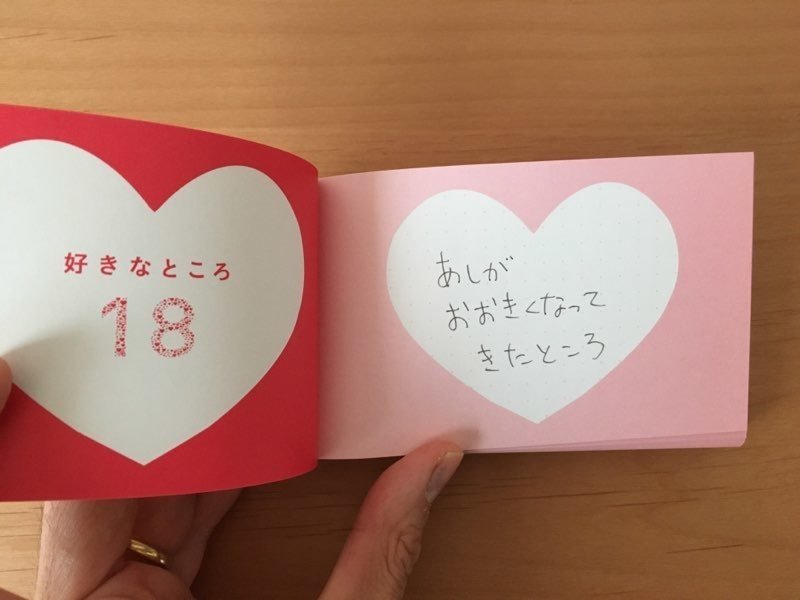 好きなところ
18
あしが
おおきくなって
きたところ